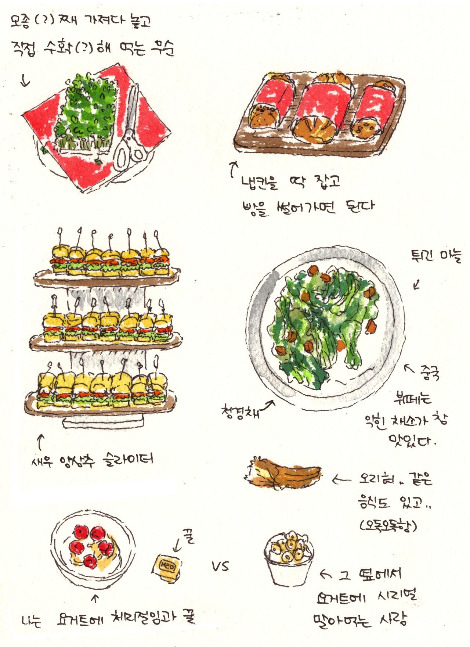 모종(?)째 가져다 놓고
직접 수확(?)해 먹는 무순
냅킨을 딱 잡고
빵을 썰어가면 된다
튀긴 마늘
청경채
중국
뷔페는
익힌 채소가 참
맛있다.
새우 양상추 슬라이더
오리혀.. 같은
음식도 있고..
(오독오독함)
꿀
VS
나는 요거트에 체리절임과 꿀
그 옆에서
요거트에 시리얼
말아먹는 사람